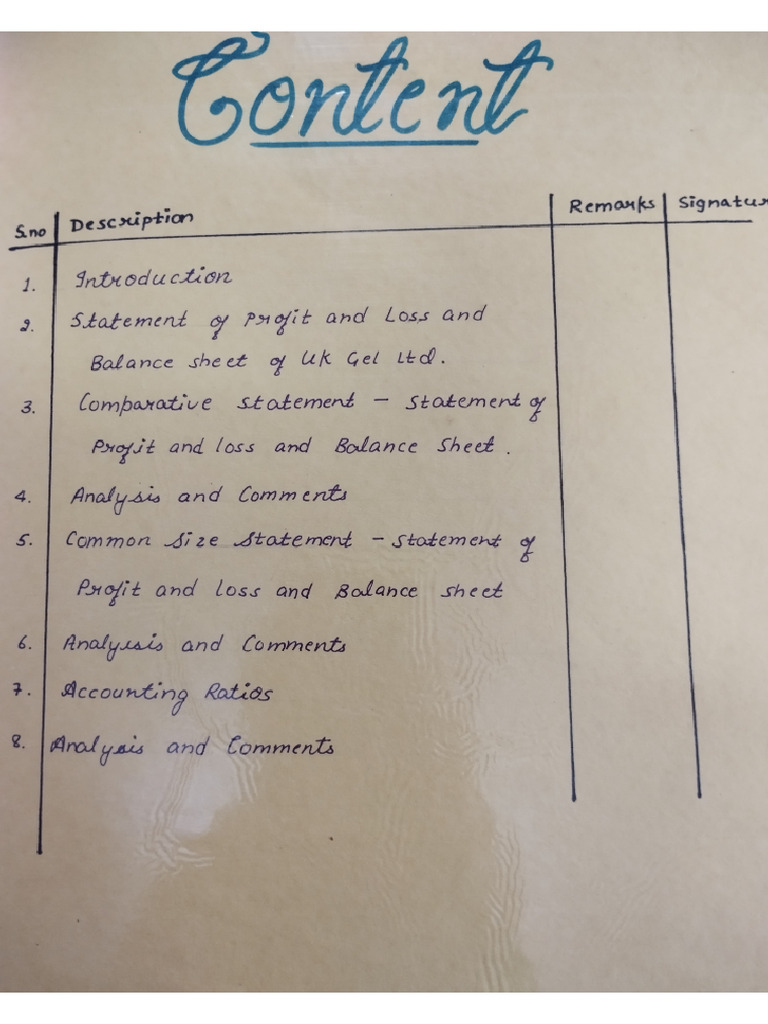 Content
S.no Description Remarks Signatur
1. Introduction
2. Statement of Profit and Loss and
Balance sheet of UK Gel Ltd.
3. Comparative statement - Statement of
Profit and loss and Balance Sheet.
4. Analysis and Comments
5. Common Size Statement - Statement of
Profit and loss and Balance sheet
6. Analysis and Comments
7. Accounting Ratios
8. Analysis and Comments